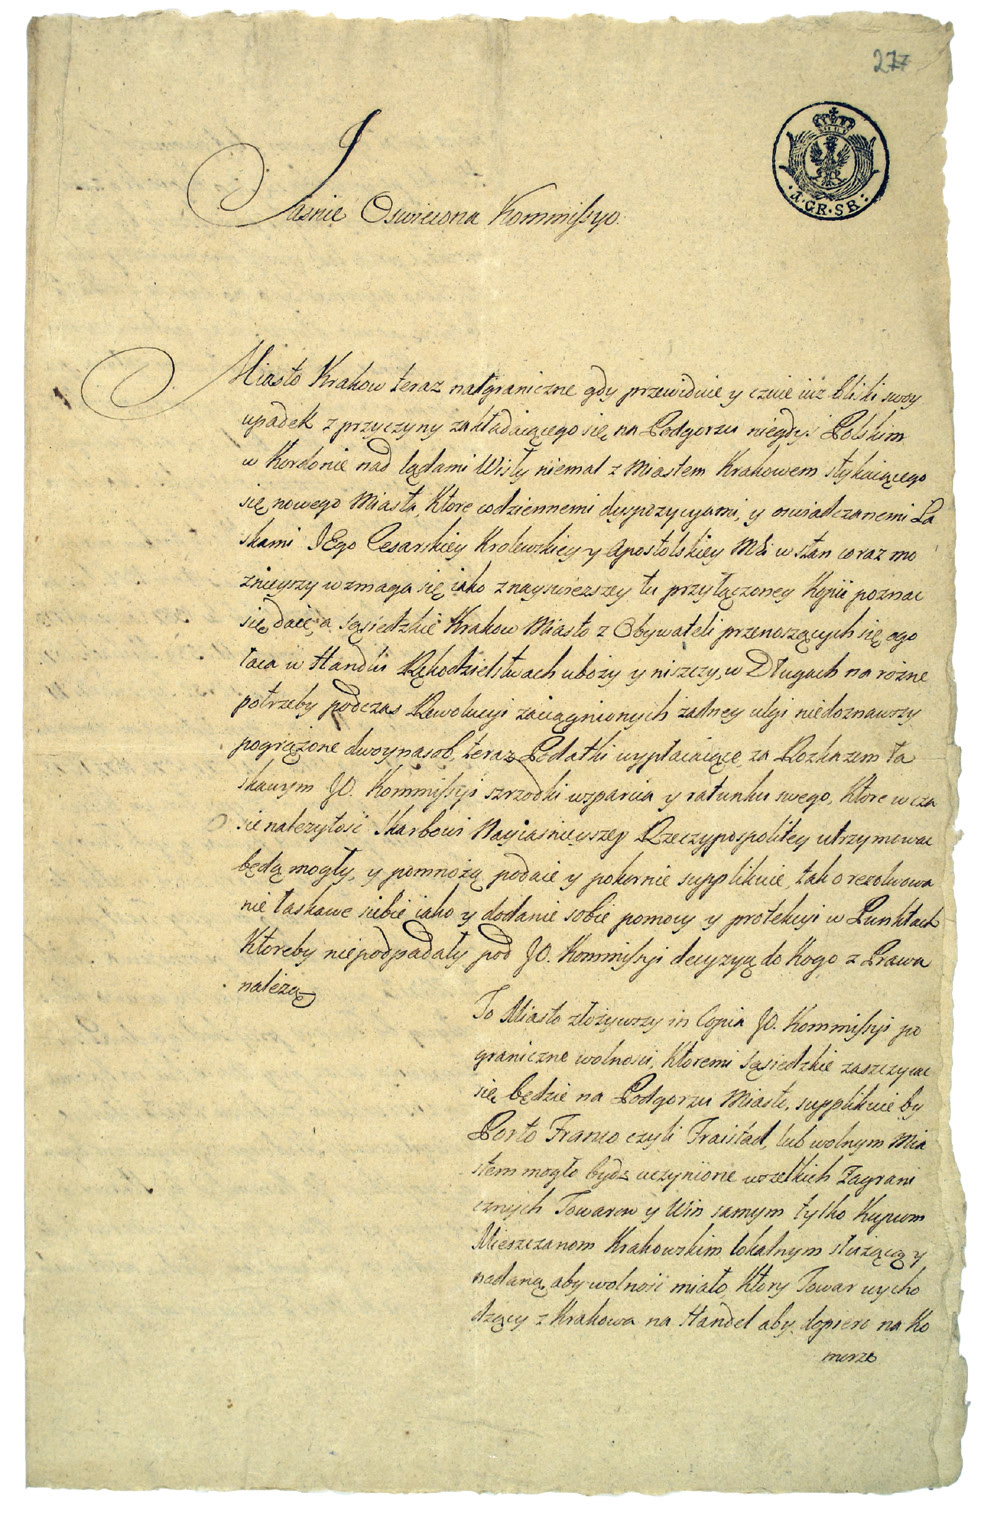 277
A. GR. SR:
Jasnie Oswiecona Kommissyo.
Miasto Krakow teraz nadgraniczne gdy przewiduie y czuie iuż bliski swoy
upadek z przyczyny zakładaiącego się na Podgorzu niegdyś Polskim
w Kordonie nad lądami Wisły niemal z Miastem Krakowem stykaiącego
się nowego Miasta, Ktore codziennemi dyspozycyami, y oswiadczanemi La
skami JEgo Cesarskiey Krolewskiey y Apostolskiey Mći w stan coraz mo
znieyszy wzmaga się iako z nayswieższey tu przyłączoney Kopii poznac
się daie, a sąsiedzkie Krakow Miasto z Obywateli przenoszących się ogo
łaca w Handlu Rękodzielstwach uboży y niszczy, w Długach na rożne
potrzeby podczas Rewolucyi zaciągnionych żadney ulgi niedoznawszy
pogrążone dwoynasob, teraz Podatki wypłacaiące, za Rozkazem ła
skawym JO. Kommissyi szrzodki wsparcia y ratunku swego, Ktore w cza
sie należytość Skarbowi Nayiasnieyszey Rzeczypospolitey utrzymowac
będą mogły, y pomnożą podaie y pokornie supplikuie, tak o rezolwowa
nie łaskawe siebie iako y dodanie sobie pomocy y protekcyi w Punktach
Ktoreby niepodpadały pod JO. Kommissyi decyzyą do Kogo z Prawa
należą
To Miasto złożywszy in Copia JO. Kommissyi po
graniczne wolnosci, Ktoremi sąsiedzkie zaszczycac
się będzie na Podgorzu Miasto, supplikuie by
Porto Franco czyli Fraistad, lub wolnym Mia
stem mogło bydz uczynione wszelkich Zagrani
cznych Towarow y Win samym tylko Kupcom
Mieszczanom Krakowskim lokalnym służący y
nadaną aby wolnosć miało, Ktory Towar wycho
dzący z Krakowa na Handel aby dopiero na Ko
morze